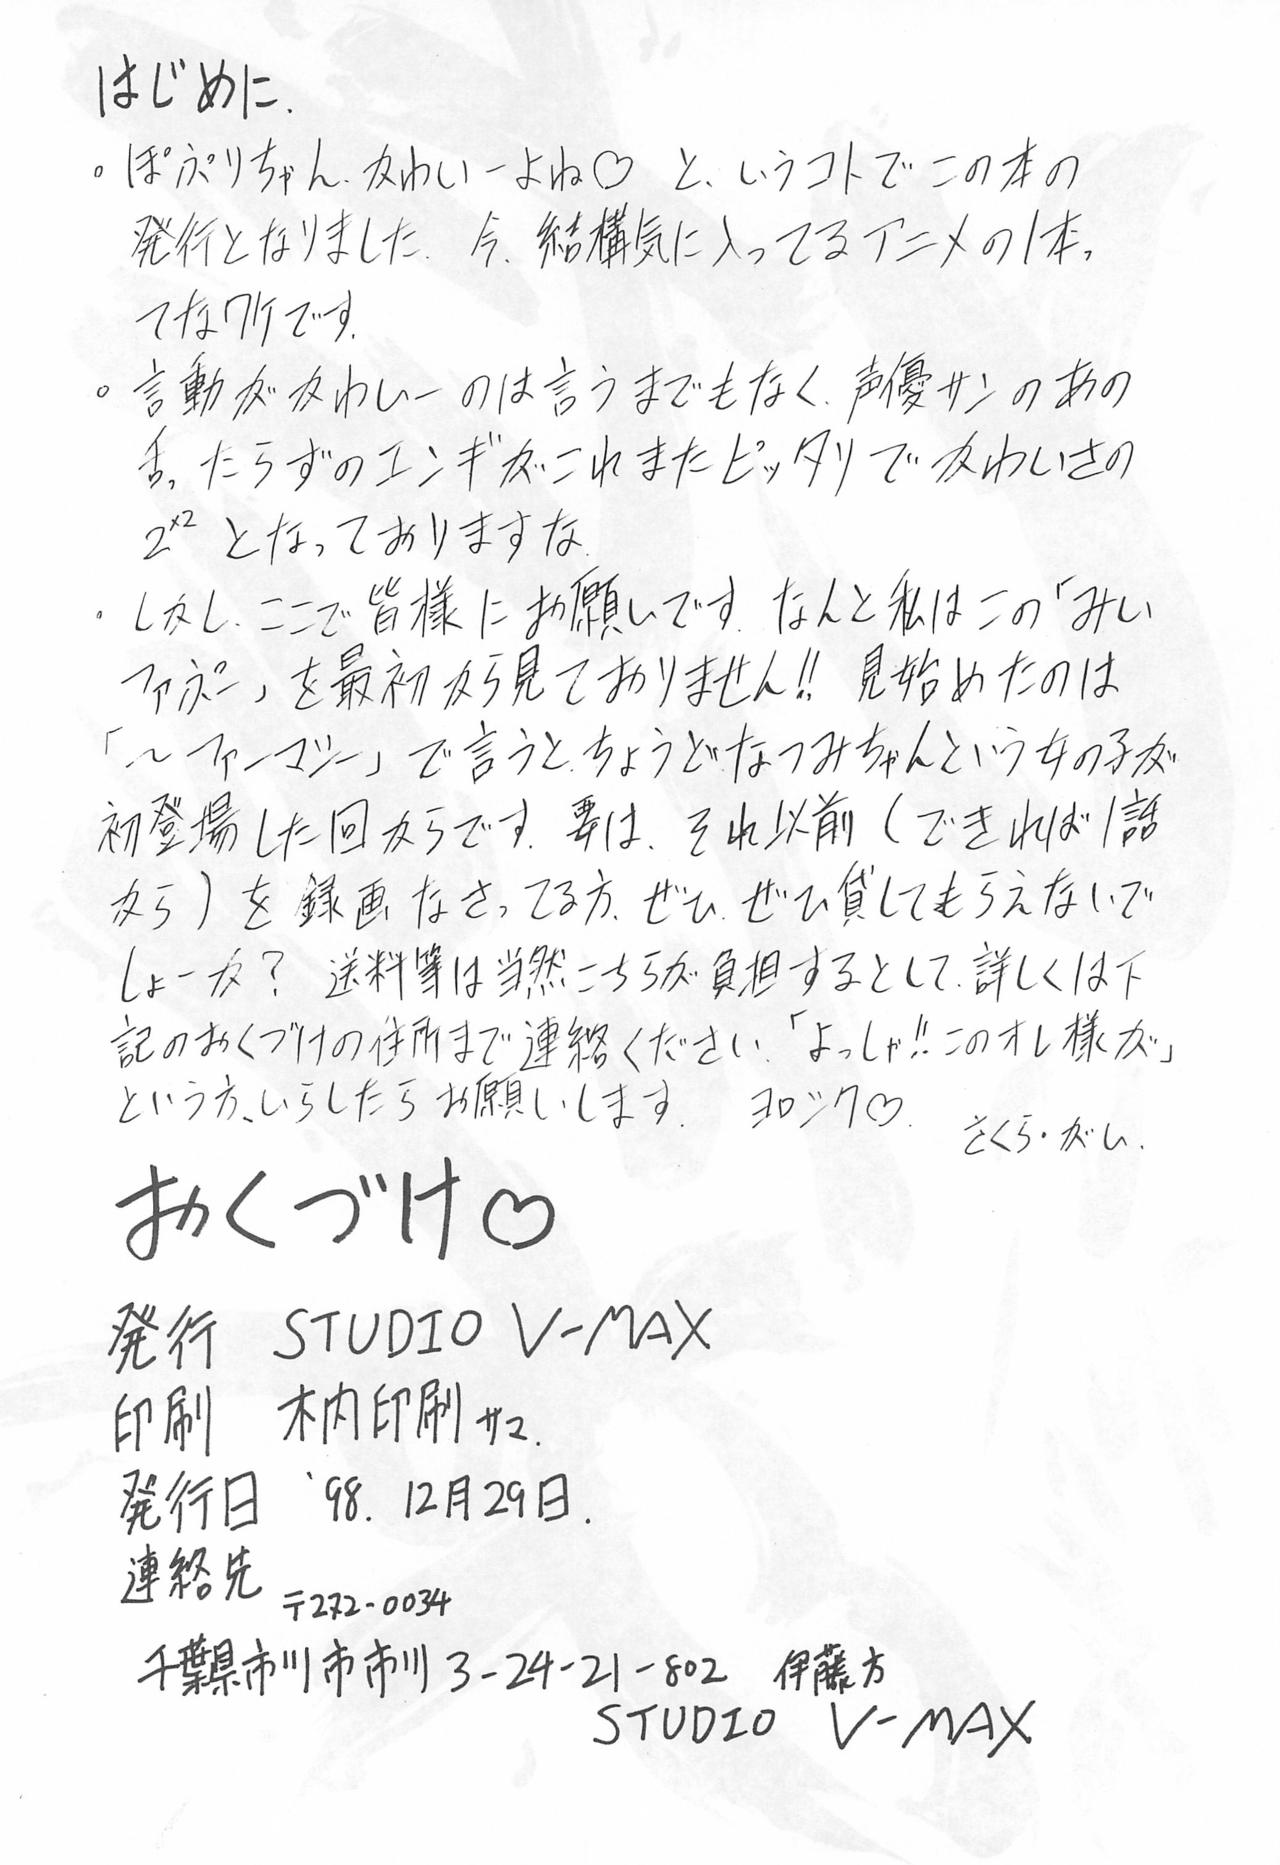 はじめに.
。ぽぷりちゃん、かわいーよね♡ と、いうコトでこの本の
発行となりました. 今、結構気に入ってるアニメの1本っ
てなワケです.
。言動がかわいーのは言うまでもなく、声優サンのあの
舌ったらずのエンギがこれまたピッタリでかわいさの
2×2 となっておりますな.
・しかし、ここで皆様にお願いです. なんと私はこの「みい
ファぷー」を最初から見ておりません!! 見始めたのは
「〜ファーマシー」で言うと、ちょうどなつみちゃんという女の子が
初登場した回からです. 要は、それ以前(できれば1話
から)を録画なさってる方、ぜひ、ぜひ貸してもらえないで
しょーか? 送料等は当然こちらが負担するとして、詳しくは下
記のおくづけの住所まで連絡ください.「よっしゃ!!このオレ様が」
という方、いらしたらお願いします. ヨロシク♡.
さくら・がい.
おくづけ♡
発行 STUDIO V-MAX
印刷 木内印刷サマ.
発行日 '98. 12月29日.
連絡先
〒272-0034
千葉県市川市市川3-24-21-802 伊藤方
STUDIO V-MAX